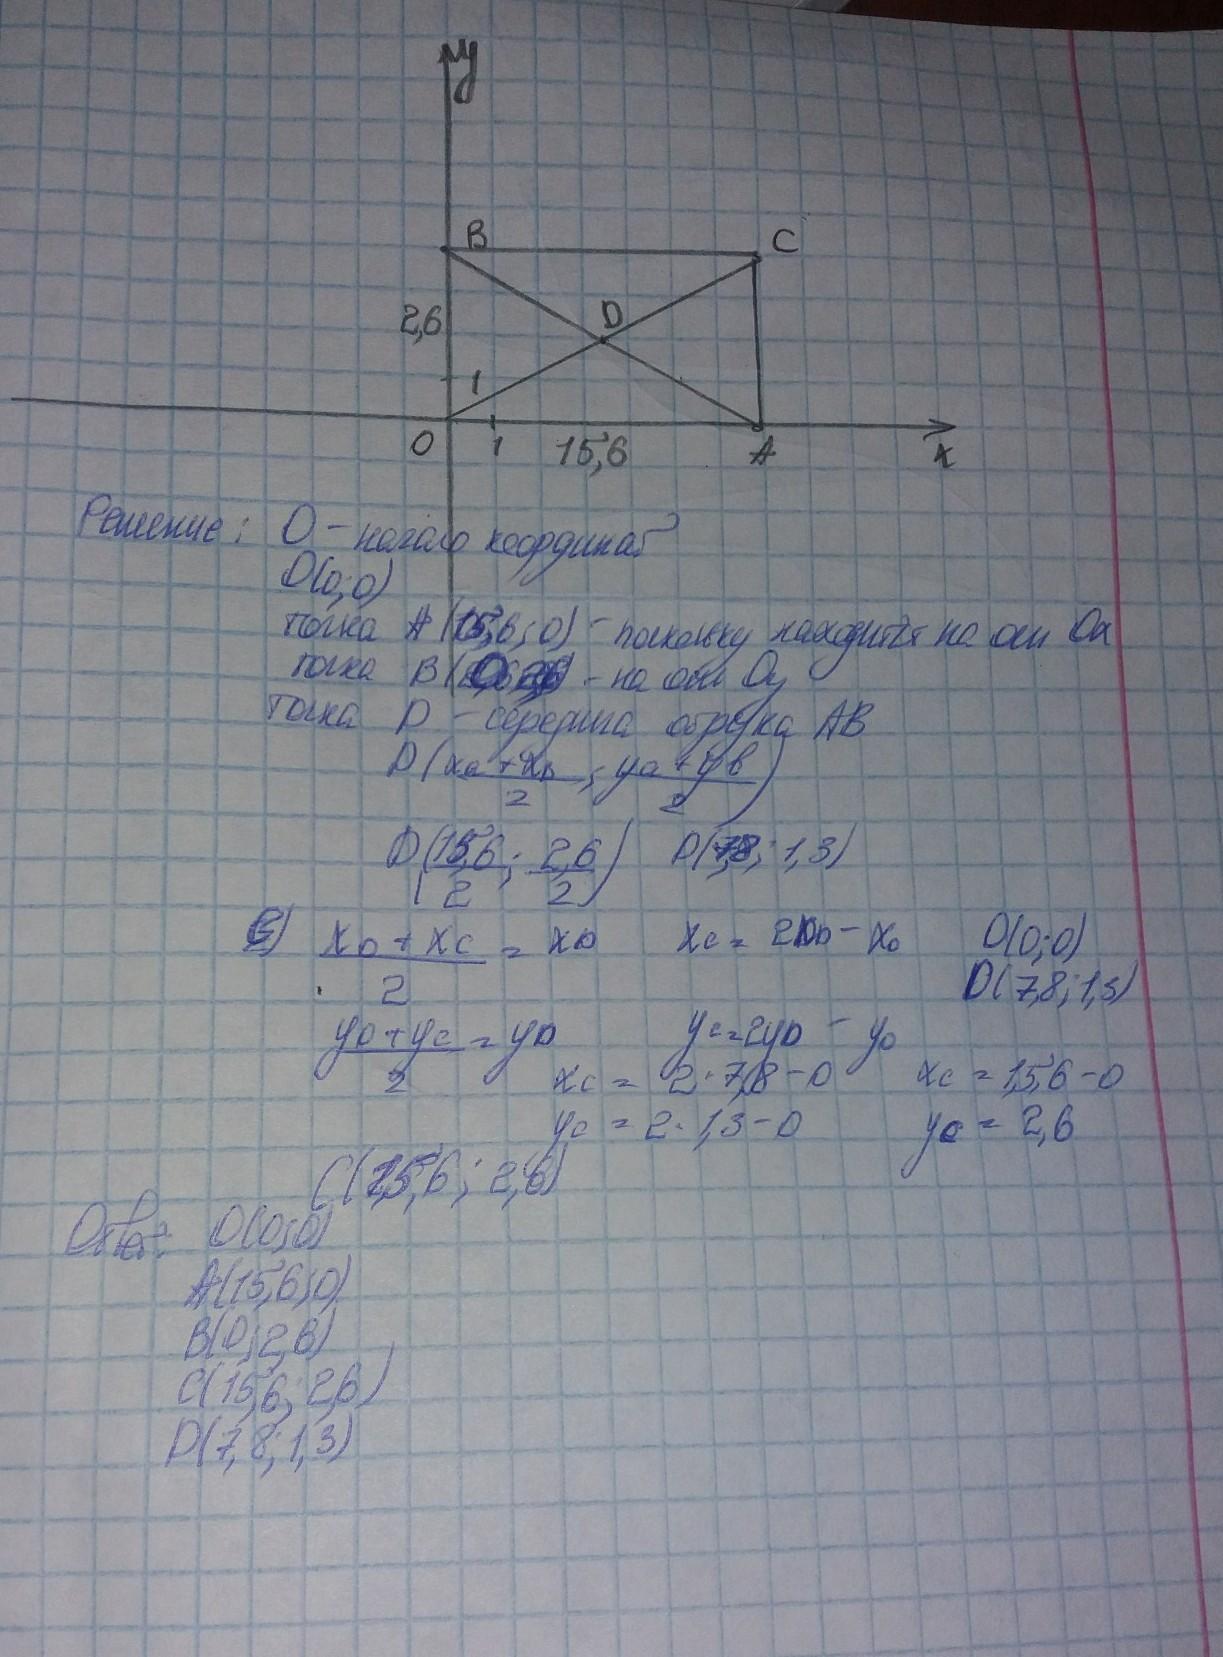 y
B
C
2,6
D
1
O
1
15,6
A
x
Решение: О – начало координат
О(0;0)
точка А (15,6; 0) – поскольку находится на оси Ох
точка В – на оси Оу
Точка D – середина отрезка АВ
D((xa + xb)/2; (ya + yb)/2)
D(15,6/2; 2,6/2) D(7,8; 1,3)
C) (xo + xc)/2 = xD xc = 2xD – xo O(0;0)
D(7,8; 1,3)
(yo + yc)/2 = yD yc = 2yD – yo
xc = 2·7,8 – 0 xc = 15,6 – 0
yc = 2·1,3 – 0 yc = 2,6
C(15,6; 2,6)
Ответ: О(0;0)
А(15,6;0)
В(0; 2,6)
С(15,6; 2,6)
D(7,8; 1,3)